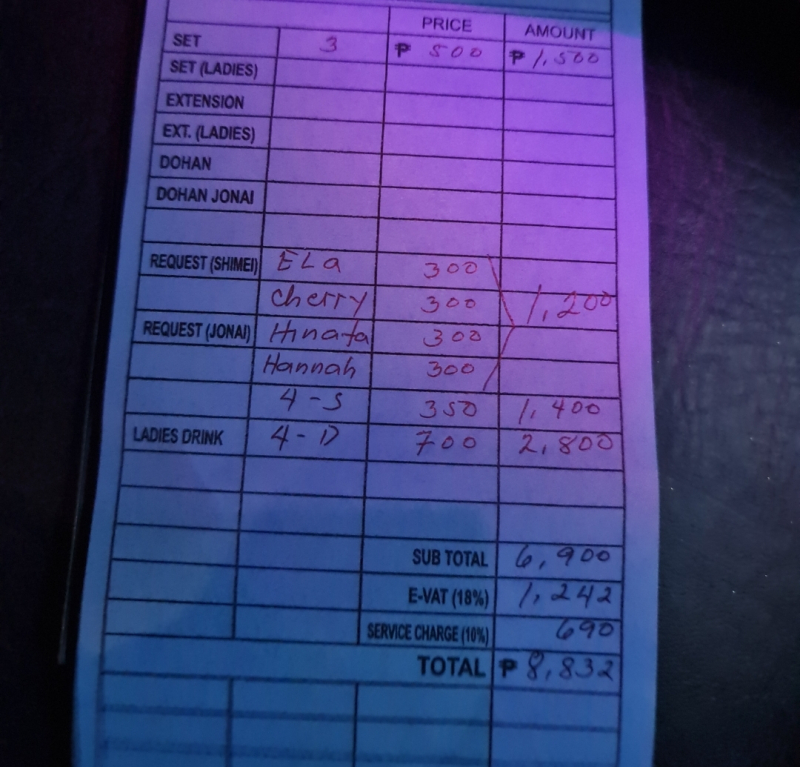 PRICE AMOUNT
SET 3 ₱ 500 ₱ 1,500
SET (LADIES)
EXTENSION
EXT. (LADIES)
DOHAN
DOHAN JONAI
REQUEST (SHIMEI) ELa 300
cherry 300 1,200
REQUEST (JONAI) Hinata 300
Hannah 300
4-S 350 1,400
LADIES DRINK 4-D 700 2,800
SUB TOTAL 6,900
E-VAT (18%) 1,242
SERVICE CHARGE (10%) 690
TOTAL ₱ 8,832